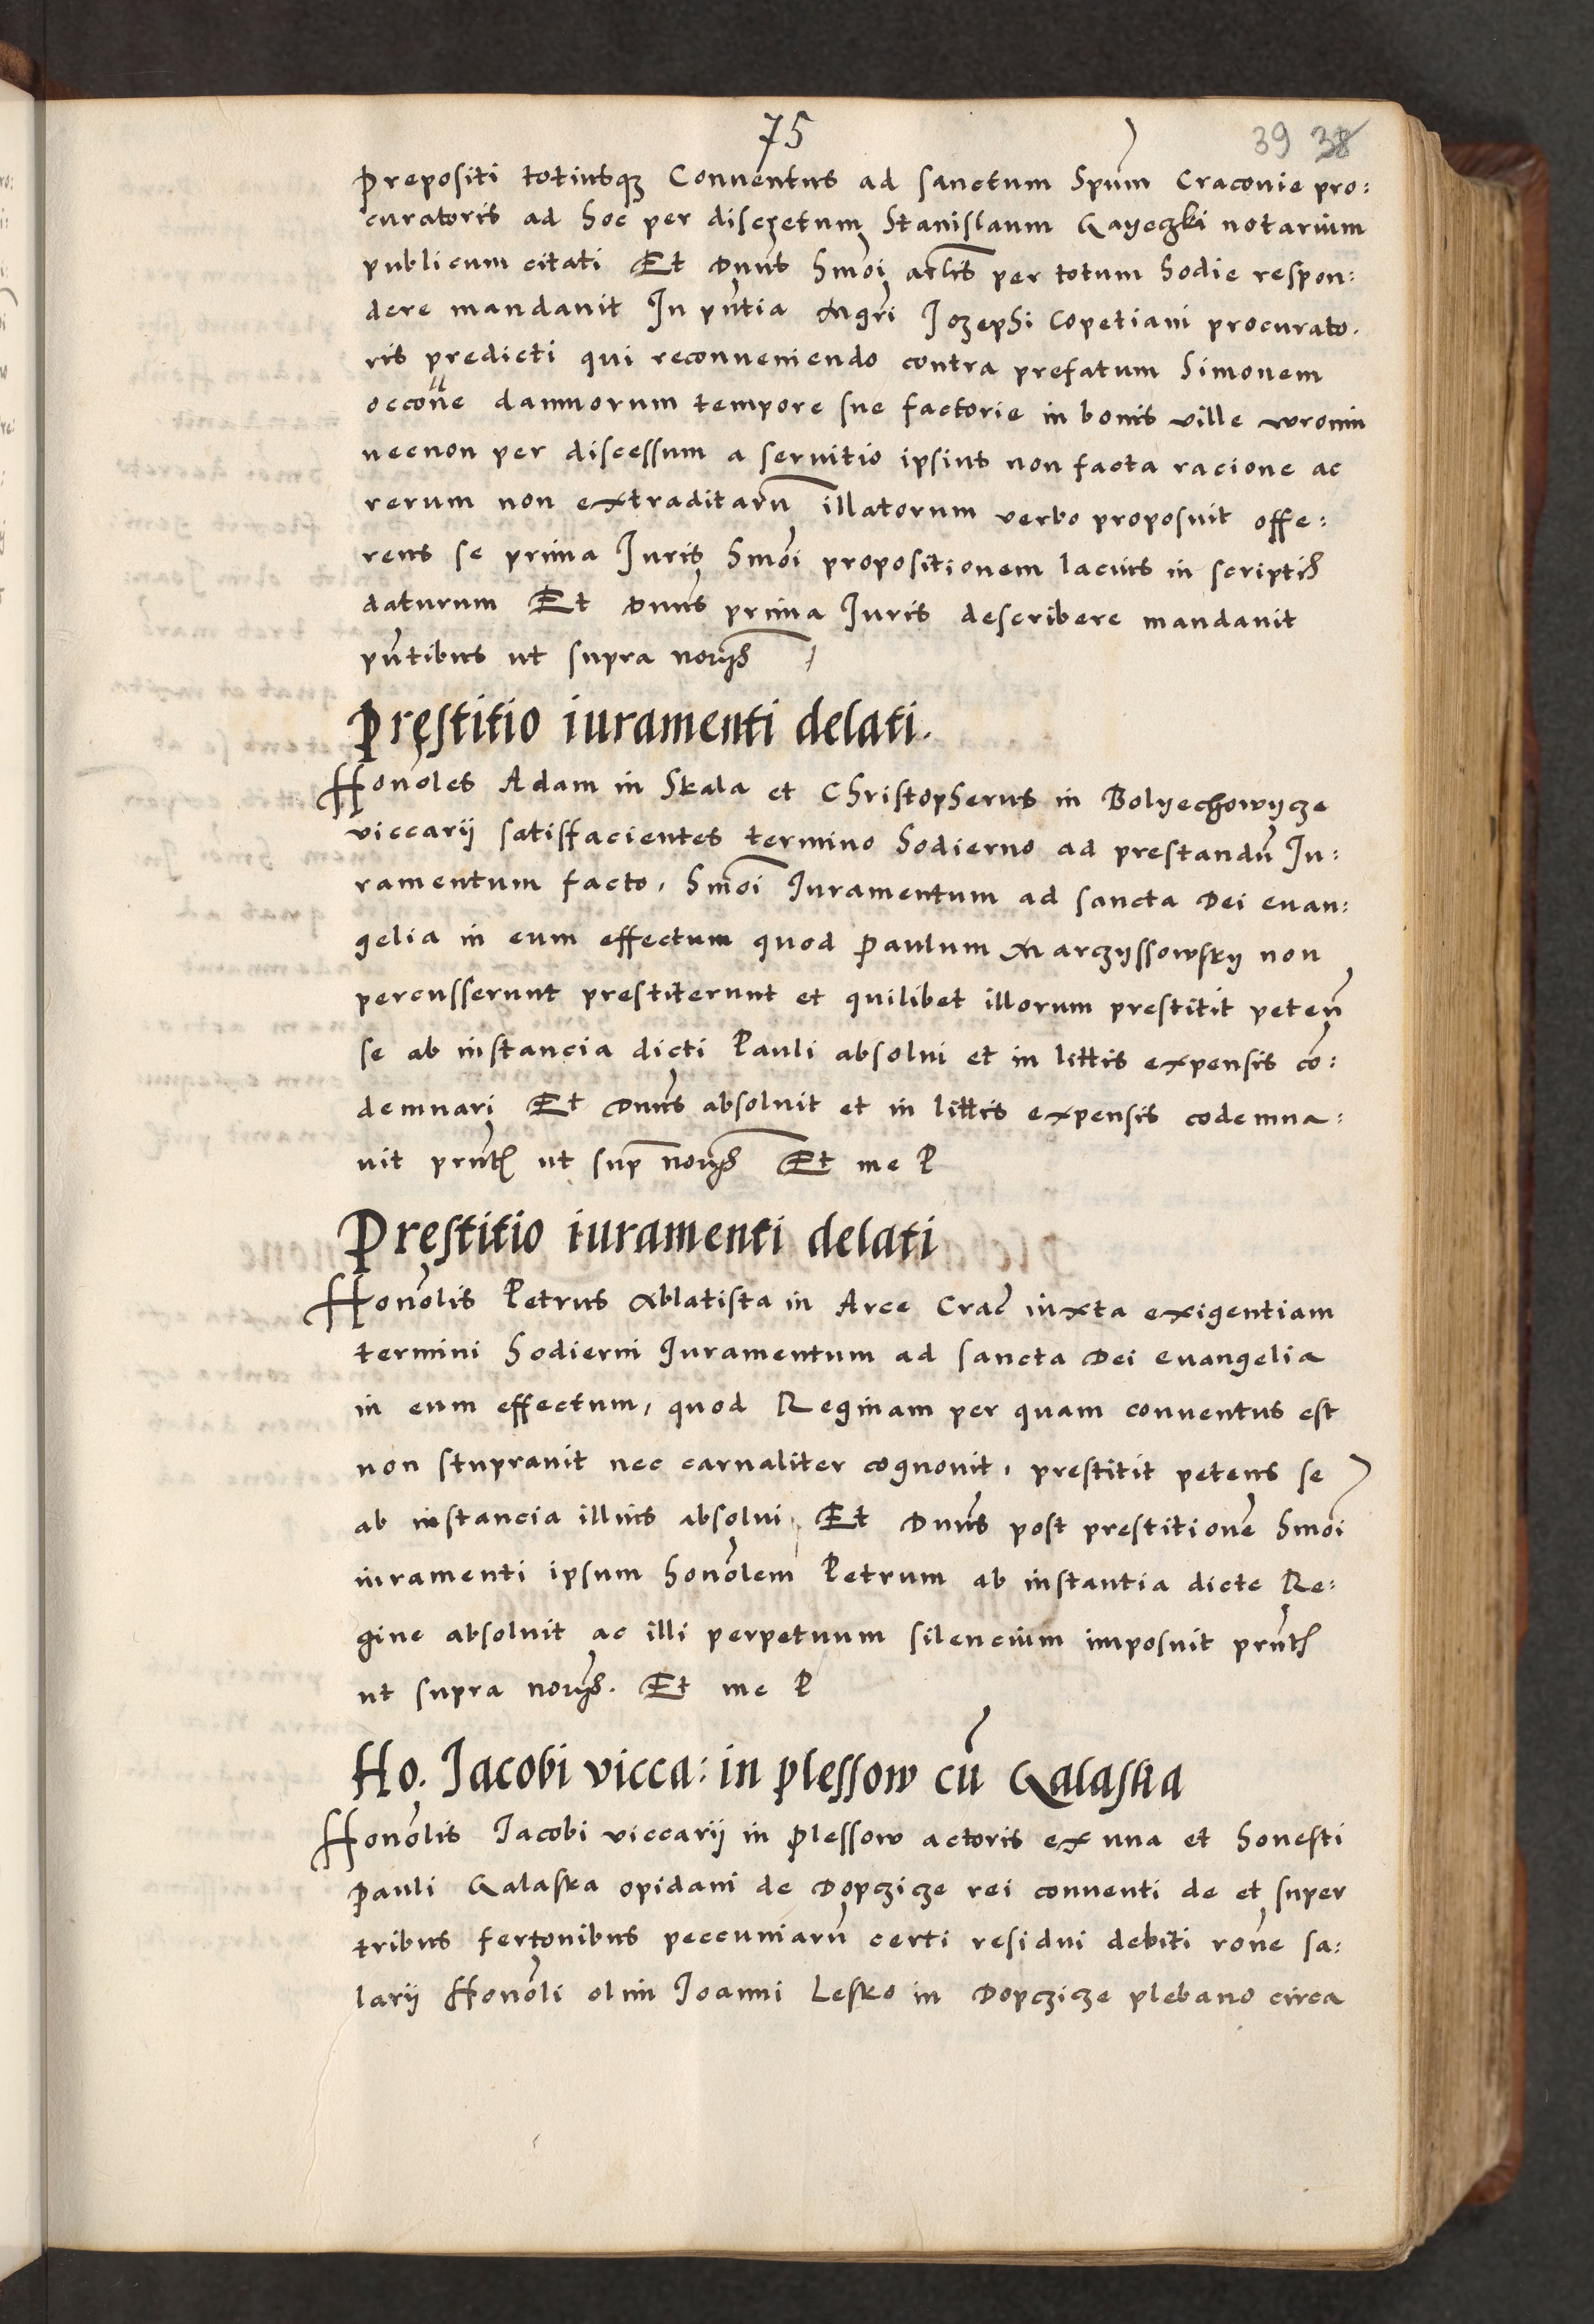 75
39 38
Prepositi totiusq₃ Conventus ad sanctum Spūm Craconie pro:
curatoris ad hoc per discretum Stanislaum Gayeczki notarium
publicum citati Et Dnus hmōi artlis per totum hodie respon:
dere mandavit In pntia Mgri Iozephi Copetiani procurato.
ris predicti qui reconveniendo contra prefatum Simonem
occōne damnorum tempore sue factorie in bonis ville wronin
necnon per discessum a servitio ipsius non facta racione ac
rerum non extraditarū illatorum verbo proposuit offe:
rens se prima Iuris hmōi propositionem lacius in scriptis
daturum Et Dnus prima Iuris describere mandavit
pntibus ut supra
Pręstitio iuramenti delati.
Honōles Adam in Skala et Christopherus in Bolyechowycze
viccarij satisfacientes termino hodierno ad prestandū Iu:
ramentum facto, hmōi Iuramentum ad sancta Dei evan:
gelia in eum effectum quod Paulum Marczyssowsky non
percusserunt prestiterunt et quilibet illorum prestitit peteñ
se ab instancia dicti Pauli absolvi et in littis expensis cō:
demnari Et Dnus absolvit et in littis expensis codemna:
vit prnt ut sup Et me P
Pręstitio iuramenti delati
Honōlis Petrus Ablatista in Arce Crac iuxta exigentiam
termini hodierni Iuramentum ad sancta Dei evangelia
in eum effectum, quod Reginam per quam conventus est
non stupravit nec carnaliter cognovit, prestitit petens se
ab instancia illius absolvi, Et Dnus post prestitionē hmōi
iuramenti ipsum honōlem Petrum ab instantia dicte Re:
gine absolvit ac illi perpetuum silencium imposuit prnt
ut supra Et me P
Ho. Iacobi vicca: in plessow cū Galaska
Honōlis Iacobi viccarij in Plessow actoris ex una et honesti
Pauli Galaska opidani de Dopczicze rei conventi de et super
tribus fertonibus peccuniarū certi residui debiti rōne sa:
larij Honōli olim Ioanni Lesko in Dopczicze plebano circa